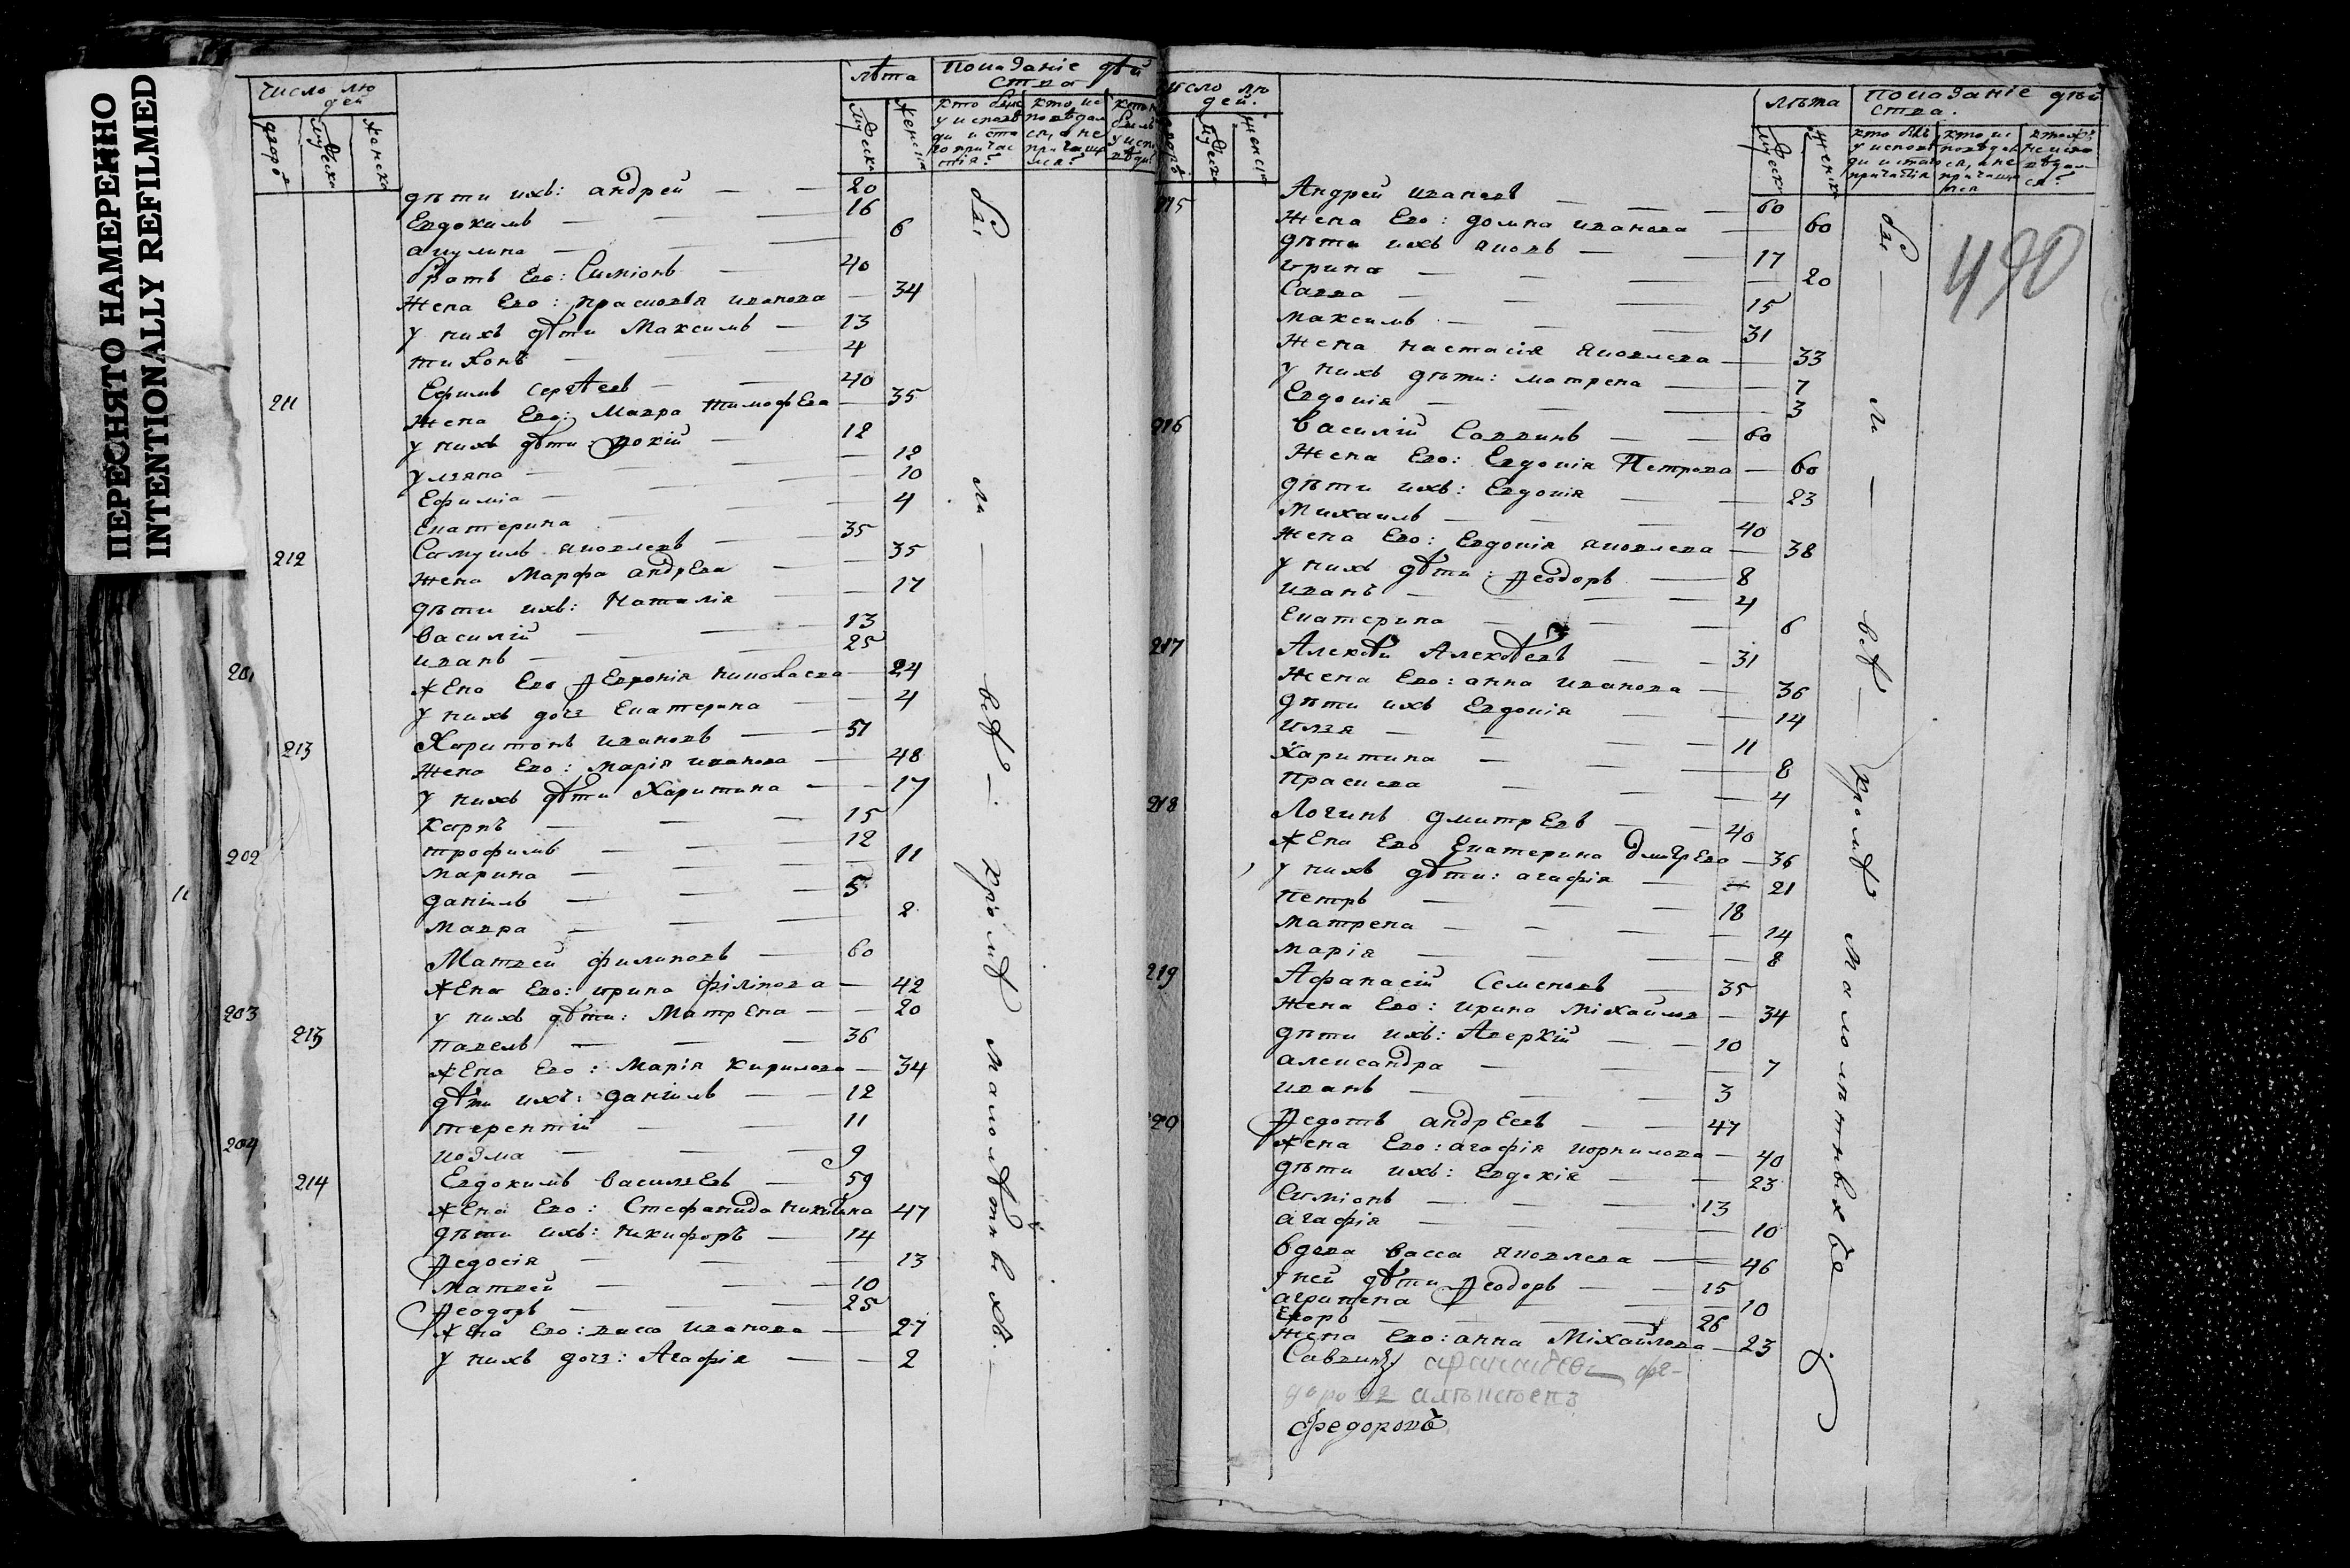 ПЕРЕСНЯТО НАМЕРЕННО
INTENTIONALLY REFILMED
число лю
дей
двор
мужеска
женска
лѣта
мужеска
женска
показаніе дѣй
ства
кто былъ
у исповѣ
ди и ста
го причас
тія?
кто ис
повѣдал
ся, а не
причаща
лся?
дѣти ихъ: андрей — — 20
Евдокимъ — — — 16
акулина — — — 6
братъ Его: Симіонъ — 40
жена Его: прасковья иванова — 34
у нихъ дѣти Максимъ — 13
тихонъ — — 4
211 Ефимъ сергѣевъ — — 40
жена Его: Мавра тимофѣва — 35
у нихъ дѣти: — 12
уляна — — — 12
Ефиміа — — — 10
Екатерина — — — 4
212 Самуилъ яковлевъ — 35
жена Марфа андрѣва — — 35
дѣти ихъ: Наталія — — 17
василій — — 13
иванъ — — — 25
201
жена Его Ѳевронія николаева — 24
у нихъ дочь Екатерина — — 4
213 Харитонъ ивановъ — — 51
жена Его: марія иванова — 48
у нихъ дѣти Харитина — — 17
карпъ — — — 15
трофимъ — — — 12
202
марина — — — 11
даніилъ — — — 5
мавра — — — 2
Матвей филиповъ — 60
жена Его: ирина філіпова — 42
203
у нихъ дѣти: Матрена — — 20
213 павелъ — — — 36
жена Его: Марія кирилова — 34
дѣти ихъ: даніилъ — — 12
терентій — — 11
204
козма — — — 9
214 Евдокимъ василевъ — 59
жена Его: Стефанида никитина 47
дѣти ихъ: никифоръ — 14
Ѳедосія — — — 13
Матвей — — — 10
Ѳеодоръ — — — 25
жена Его: васса иванова — 27
у нихъ дочь: Агафія — — 2
бы — ли — всѣ — кромѣ малолѣтныхъ. —
11
число лю
дей.
дворъ
мужеска
женска
лѣта
мужеска
женска
показаніе дѣй
ства.
кто былъ
у исповѣ
ди и ста
причастія
кто ис
повѣдал
ся, а не
причаща
лся
490
215 Андрей ивановъ — — 60
жена Его: домна иванова — 60
дѣти ихъ яковъ — — 17
ирина — — — 20
Савва — — — 15
максимъ — — — 31
жена настасія яковлева — 33
у нихъ дѣти: матрена — — 7
Евдокія — — — 3
216 василій Саввинъ — — 60
жена Его: Евдокія Петрова — 60
дѣти ихъ: Евдокія — — 23
Михаилъ — — — 40
жена Его: Евдокія яковлева — 38
у нихъ дѣти: Ѳеодоръ — 8
иванъ — — — 4
Екатерина — — — 6
217 Алексѣй Алексѣевъ — — 31
жена Его: анна иванова — 36
дѣти ихъ Евдокія — — 14
илья — — — 11
Харитина — — — 8
Прасковя — — — 4
218 Логинъ дмитрѣвъ — — 40
жена Его Екатерина дмитрѣва — 36
у нихъ дѣти: агафія — — 21
петръ — — — 18
матрена — — — 14
марія — — — 8
219 Афанасій Семеновъ — 35
жена Его: ирина міхайлов — 34
дѣти ихъ: Аверкій — — 10
александра — — — 7
иванъ — — — 3
220 Ѳедотъ андрѣевъ — — 47
жена Его: агафія корнилова — 40
дѣти ихъ: Евдокія — — 23
Симіонъ — — — 13
агафія — — — 10
вдова васса яковлева — 46
у ней дѣти Ѳеодоръ — — 15
агрипена — — — 10
Егоръ — — — 26
жена Его: анна Міхайлова — 23
Федоровъ
бы — ли — всѣ — кромѣ малолѣтныхъ